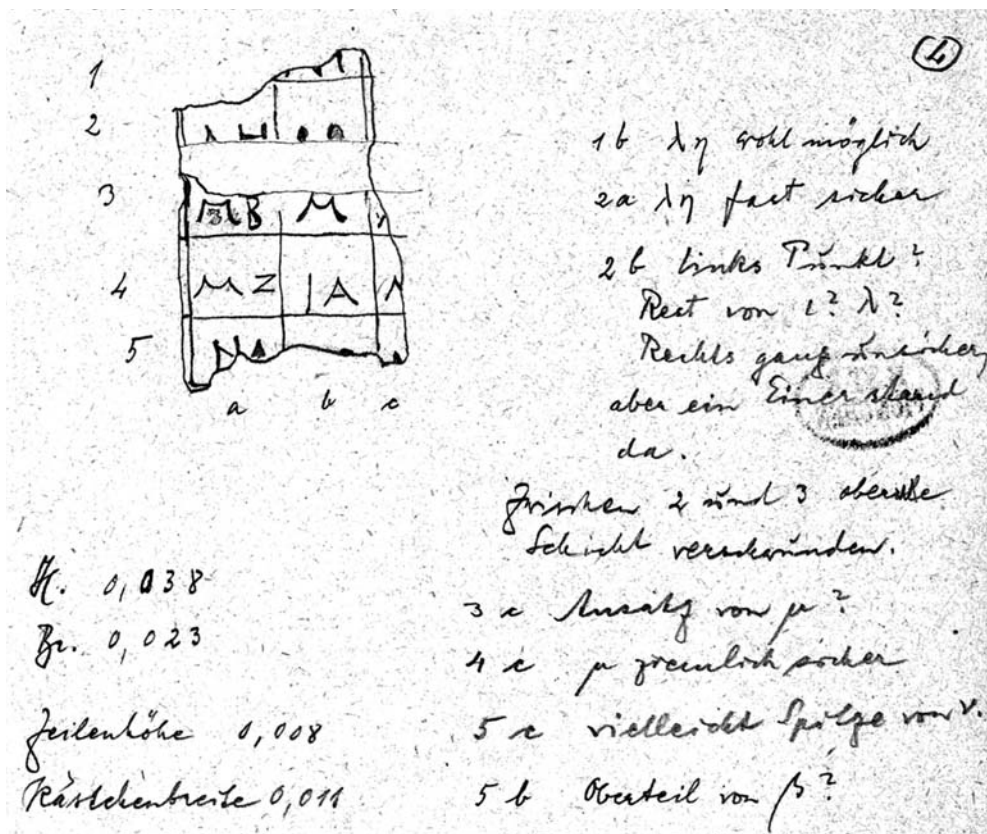 4
1
2
3
4
5
Μ Β Μ
Μ Ζ Ι Α
Ν
a b c
1b λη wohl möglich
2a λη fast sicher
2b links Punkt?
Rest von ι? λ?
Rechts ganz unsicher,
aber ein Einer stand
da.
Zwischen 2 und 3 oberste
Schicht verschwunden.
3c Ansatz von μ?
4c μ ziemlich sicher
5c vielleicht Spitze von ν.
5b Oberteil von β?
H. 0,038
Br. 0,023
Zeilenhöhe 0,008
Kästchenbreite 0,011